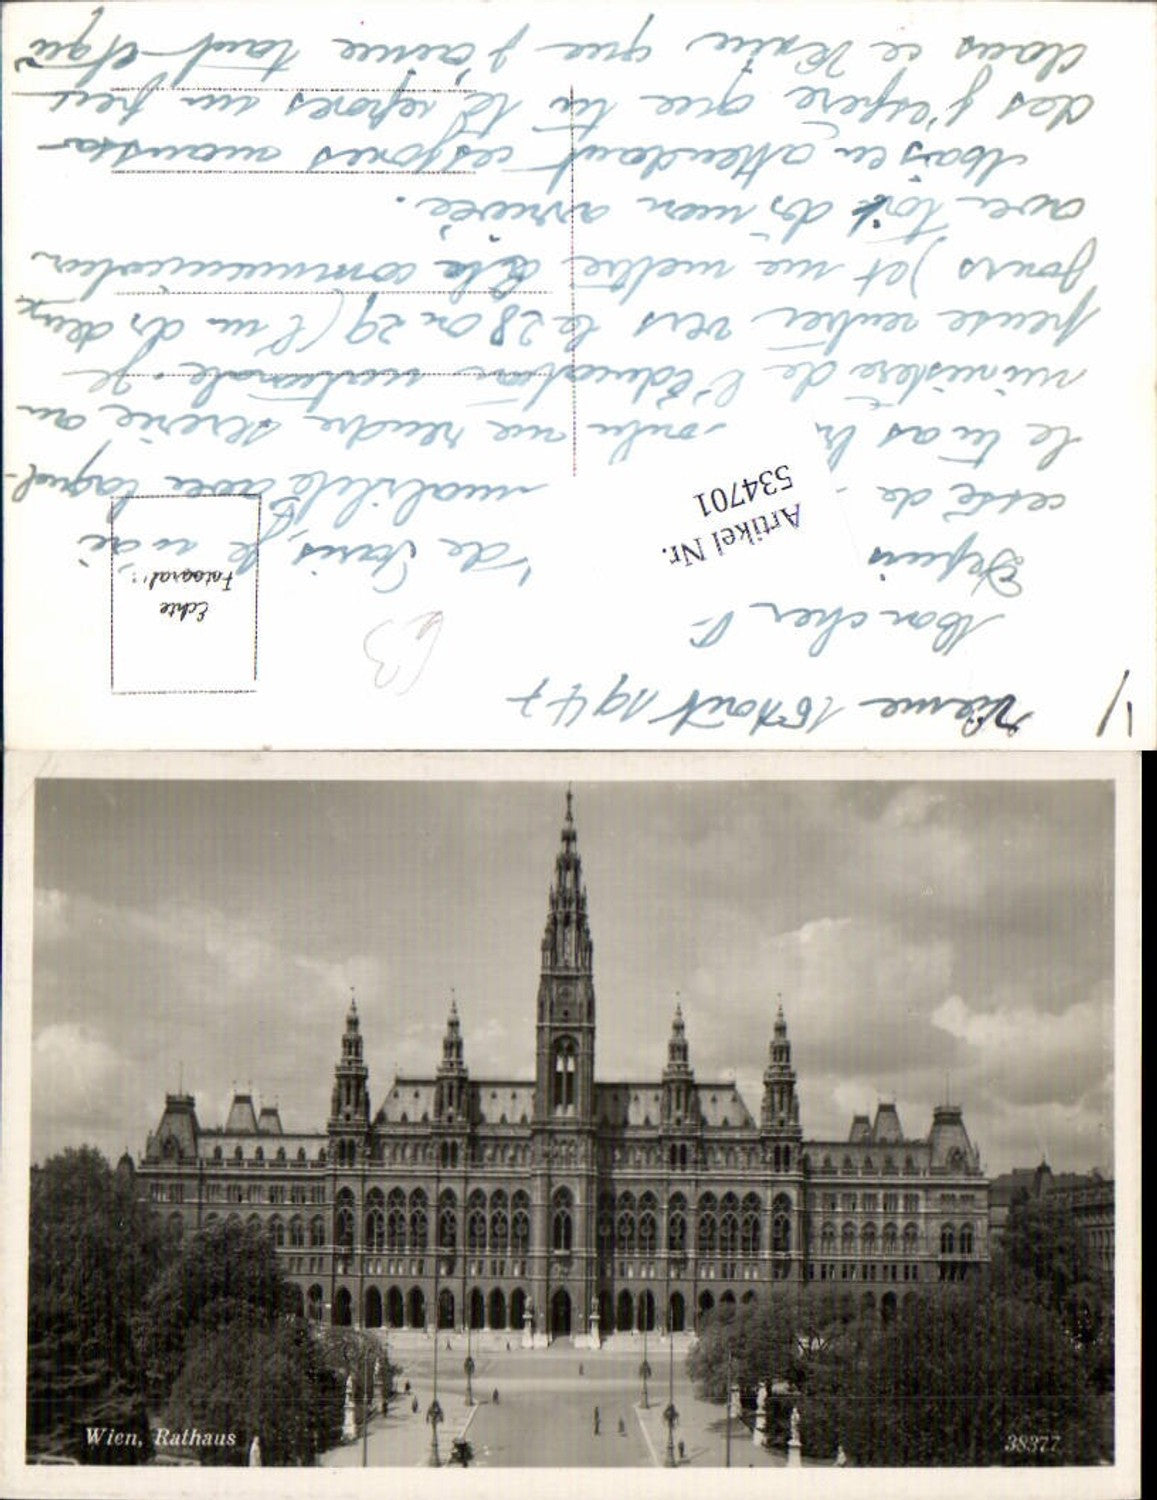 1/
Vienne 16 Août 1947
Mon cher
Depuis de Paris, je n'ai
cessé de mabilité avec laquel-
le tu as me rendre service au
ministère de l'Education nationale. Je
pense rentrer vers le 28 ou 29 (l'un ds deux
jours) et me mettre à la communication
avec toi ds mon arrivée.
Mais en attendant ces jores maussa-
des j'espère que tu te reposes un peu
dans ce Vienne que j'aime tant et qui
63
Echte
Fotograf
Artikel Nr.
534701
Wien, Rathaus
38377